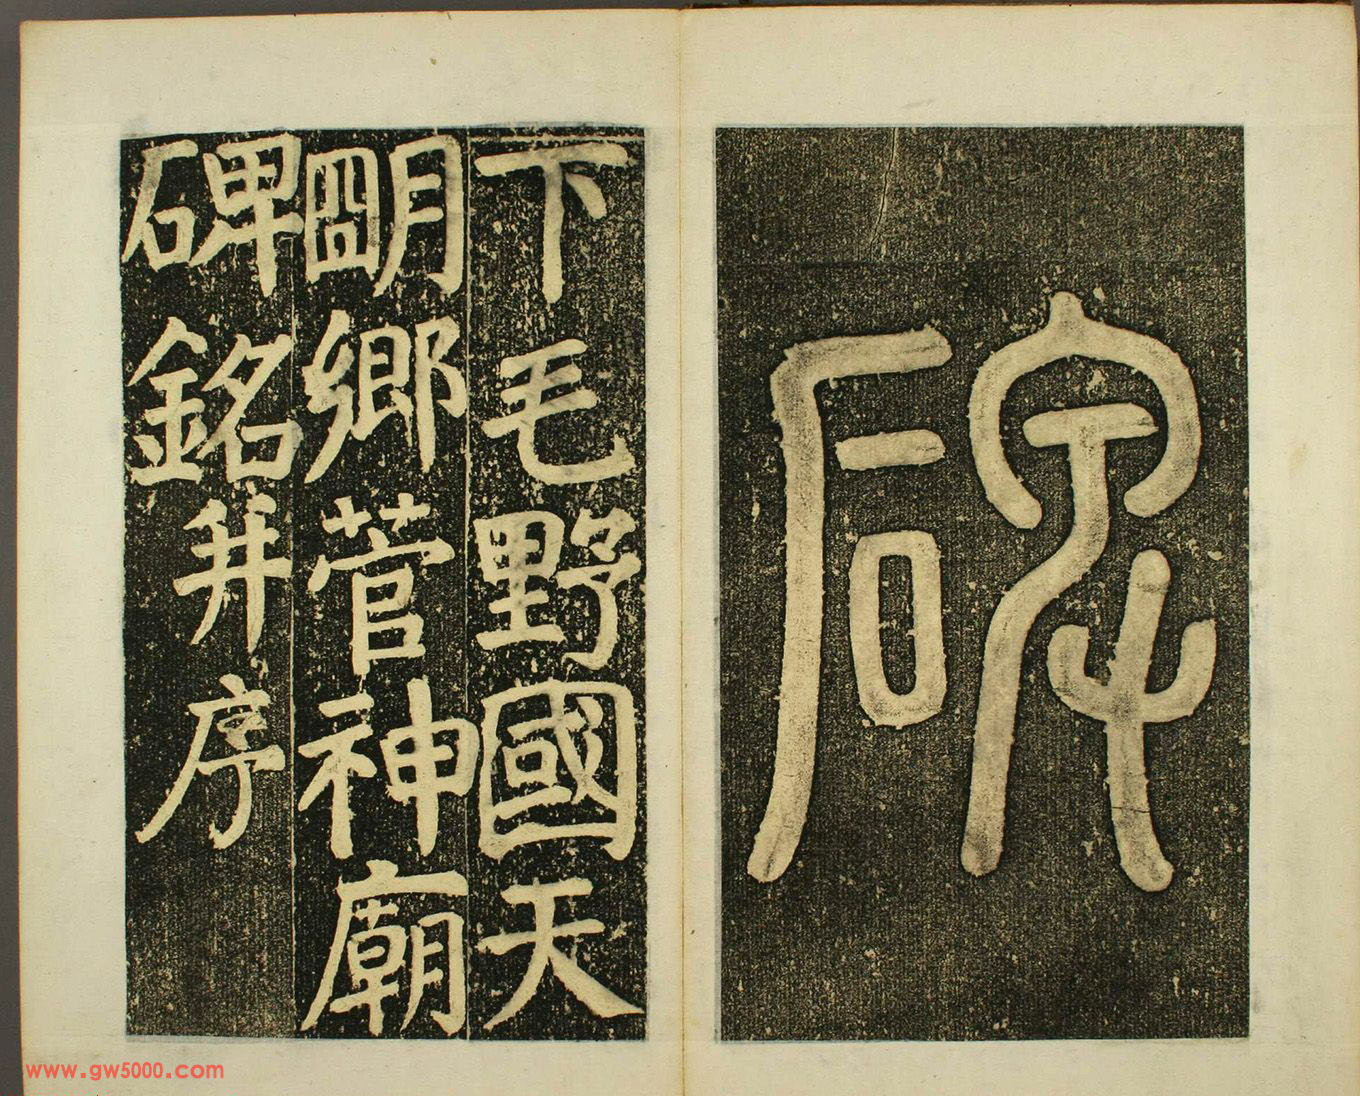 碑
下毛野國天
朙鄉菅神廟
碑銘并序
www.gw5000.com